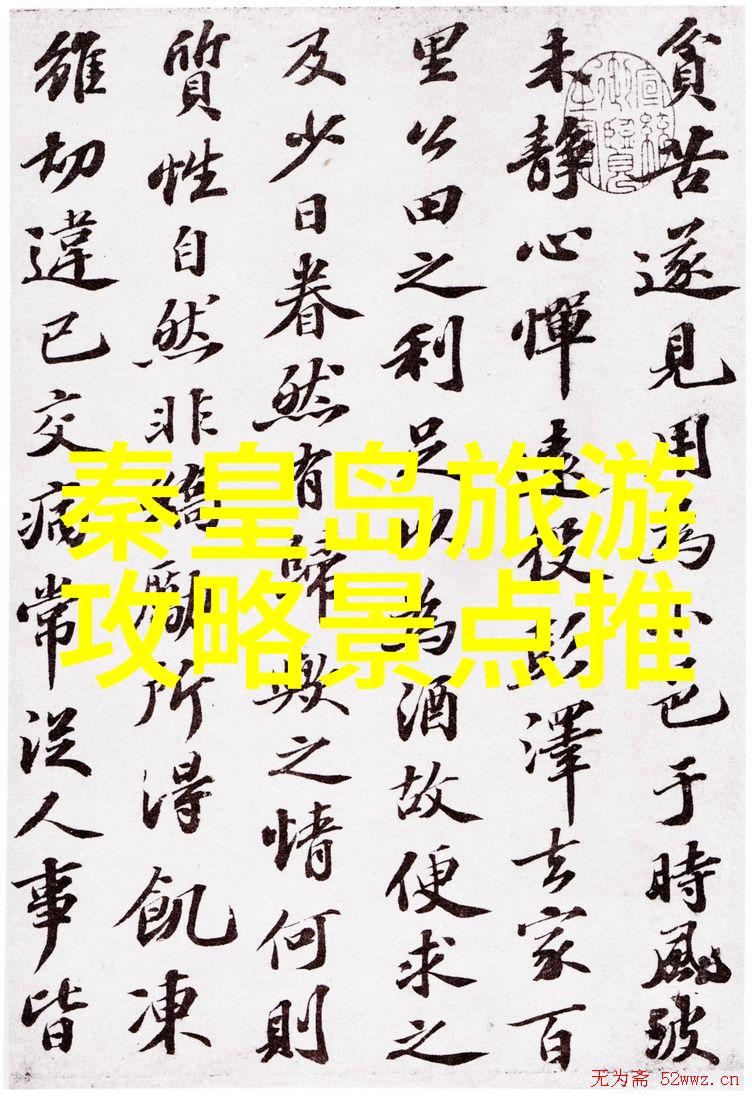 貧苦遂見用為小邑于時風波
未靜心憚遠役彭澤去家百
里公田之利足以為酒故便求之
及少日眷然有歸歟之情何則
質性自然非矯勵所得飢凍
雖切違己交病常從人事皆
宣統御覽之寶
秦皇岛旅游
攻略景点推
无为斋 52wwz.cn